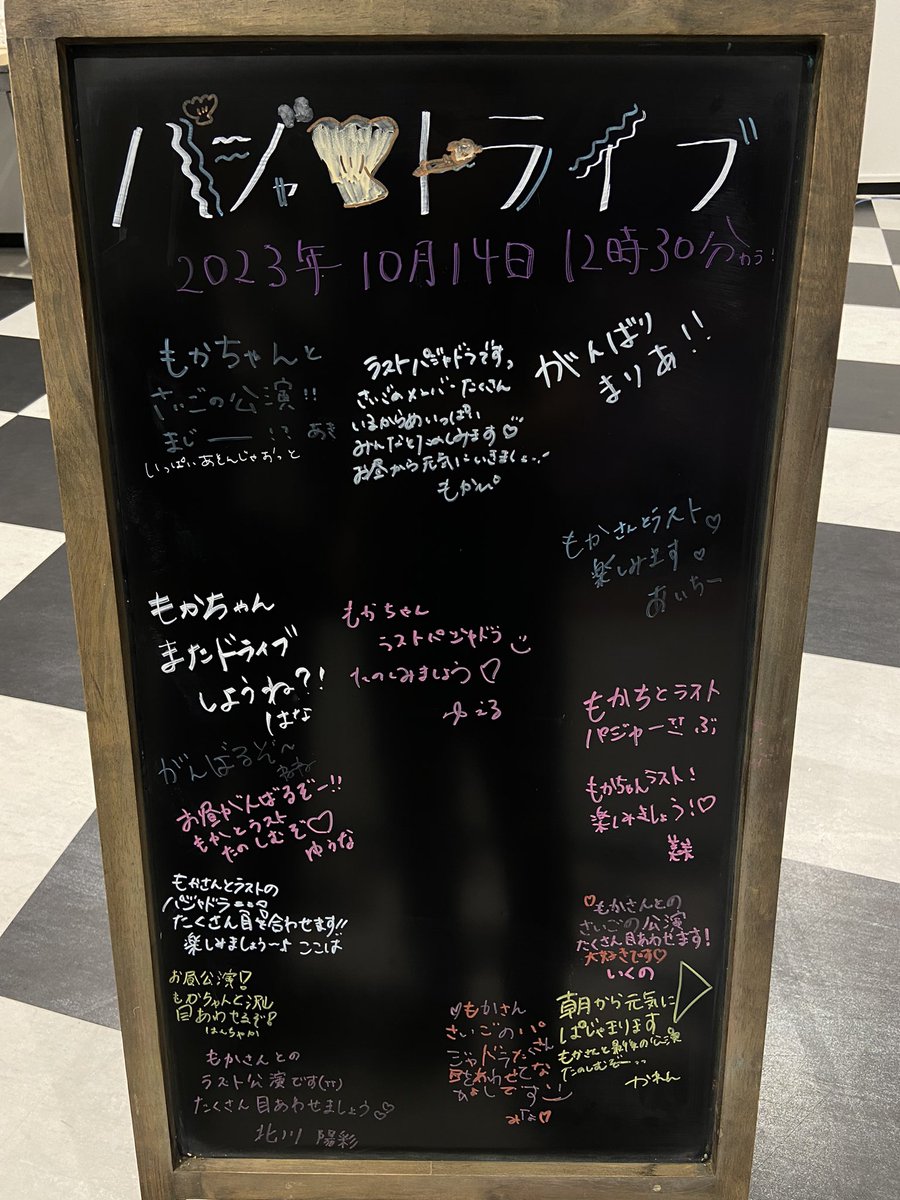 パジャマドライブ
2023年 10月14日 12時30分
もかちゃんと
さいごの公演!!
まじ―― !? あき
いっぱいあそんじゃおっと
ラストパジャドラですっ
さいごのメンバーたくさん
いるからめいっぱい
みんなとたのしみます♡
お昼から元気にいきましょー!
がんばり
まりあ!!
もかさんとラスト♡
楽しみます♡
あいちー
もかちゃん
またドライブ
しようね?!
はな
もかちゃん
ラストパジャドラ
たのしみましょう♡
ゆころ
もかちとラスト
パジャー
がんばるぞ〜
お昼がんばるぞー!!
もかことラスト
たのしむぞ♡
ゆうな
もかちゃんラスト!
楽しみましょう!♡
もかさんとラストの
パジャドラ
たくさん目を合わせます!!
楽しみましょう〜♪ ここは
♡もかさんとの
さいごの公演
たくさん目あわせます!
大好きです♡
いくの
お昼公演!
もかちゃんと沢山
目あわせるぞ!
もかさんとの
ラスト公演です(TT)
たくさん目あわせましょう♡
北川 陽彩
♡もかさん
さいごのパ
ジャドラたくさん
目をあわせてな
かよしです
朝から元気に
ぱじゃまります
もかさんと最後の公演
たのしむぞー
かれん